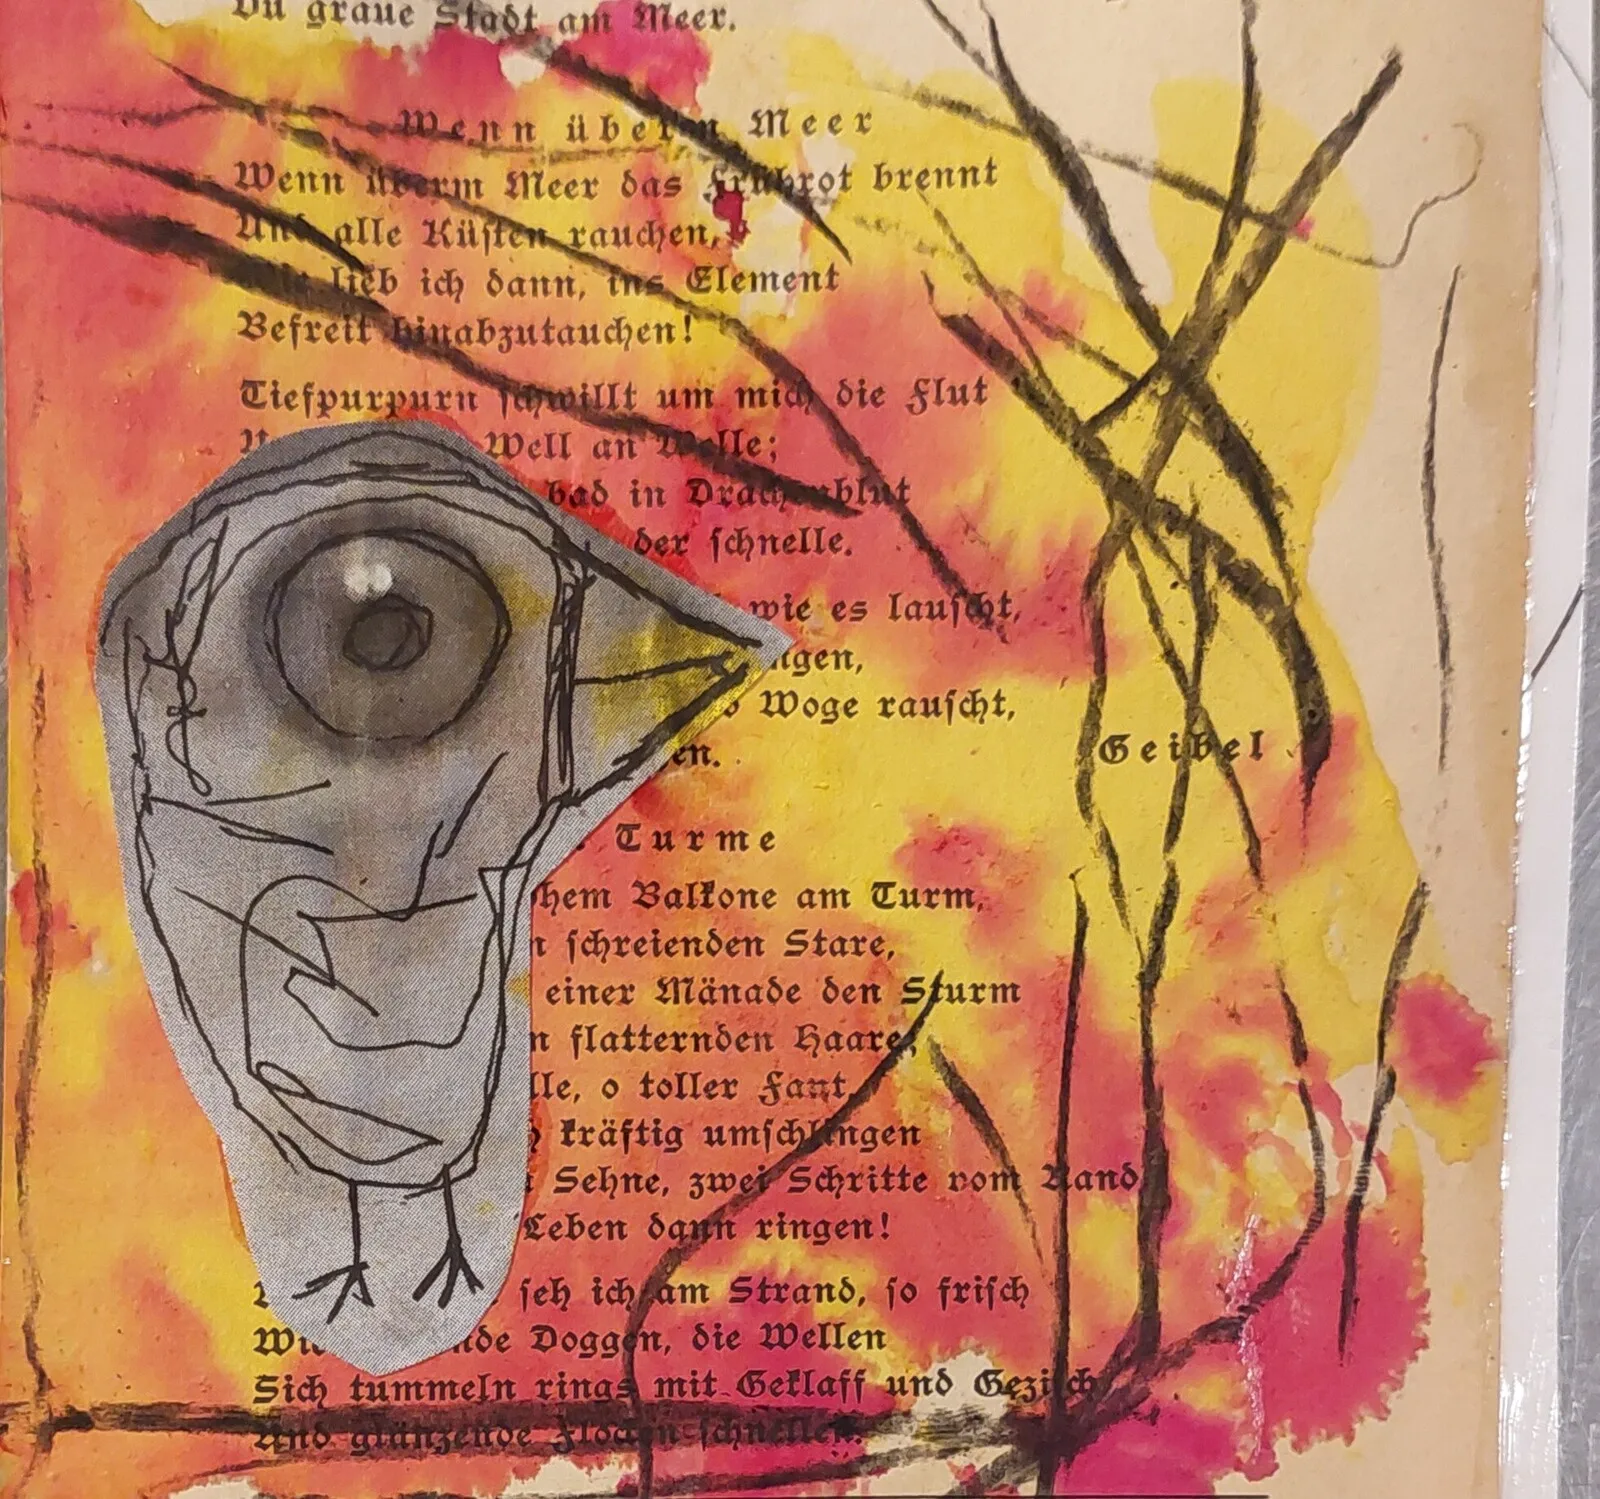 Du graue Stadt am Meer.
Wenn überm Meer
Wenn überm Meer das Frührot brennt
Und alle Küsten rauchen,
Wie lieb ich dann, ins Element
Befreit hinabzutauchen!
Tiefpurpurn schwillt um mich die Flut
Well an Welle;
bad in Drachenblut
der schnelle.
wie es lauscht,
ngen,
Woge rauscht,
en.
Geibel
Turme
hem Balkone am Turm,
n schreienden Stare,
einer Mänade den Sturm
n flatternden Haare;
lle, o toller Fant,
kräftig umschlingen
Sehne, zwei Schritte vom Rand
Leben dann ringen!
seh ich am Strand, so frisch
Wi nde Doggen, die Wellen
Sich tummeln rings mit Geklaff und Gezisch
Und glänzende Flocken schnellen.